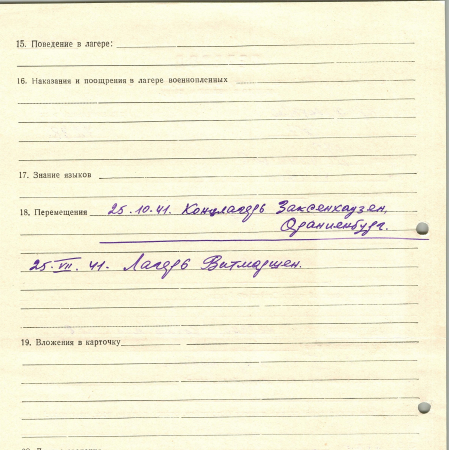 15. Поведение в лагере:
16. Наказания и поощрения в лагере военнопленных
17. Знание языков
18. Перемещения 25.10.41. Концлагерь Заксенхаузен,
Ораниенбург.
25.VII.41. Лагерь Витмаршен.
19. Вложения в карточку